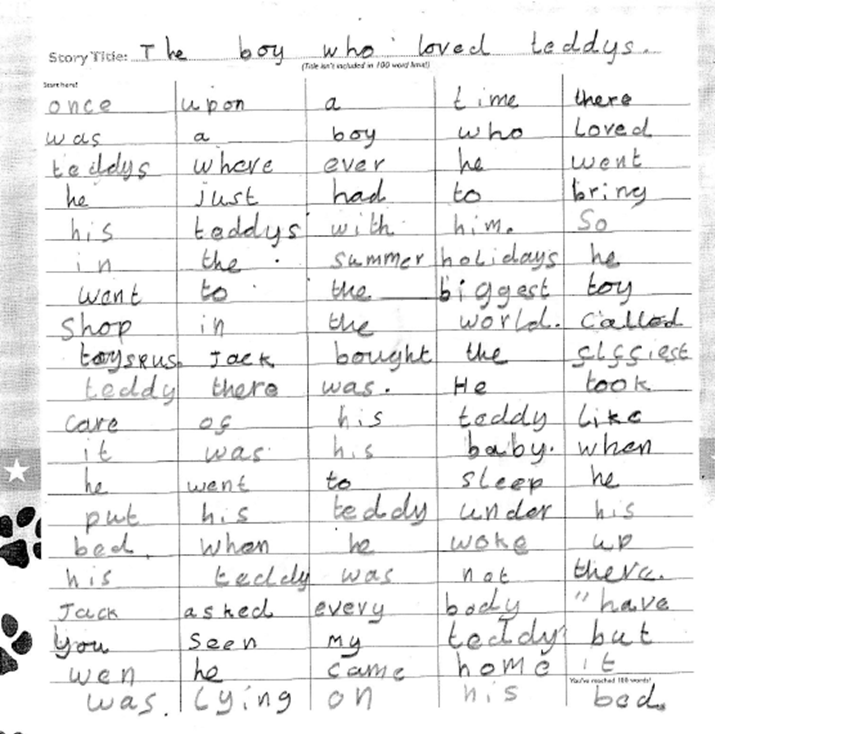 Story Title: The boy who loved teddys.
(Title isn't included in 100 word limit!)
Start here!
once upon a time there
was a boy who loved
teddys where ever he went
he just had to bring
his teddys with him. So
in the summer holidays he
want to the biggest toy
shop in the world. Called
toysrus. Jack bought the
teddy there was. He took
care of his teddy like
it was his baby. when
he went to sleep he
put his teddy under his
bed. When he woke up
his teddy was not there.
Jack asked every body "have
You seen my teddy" but
wen he came home it
You've reached 100 words!
was. Lying on his bed.